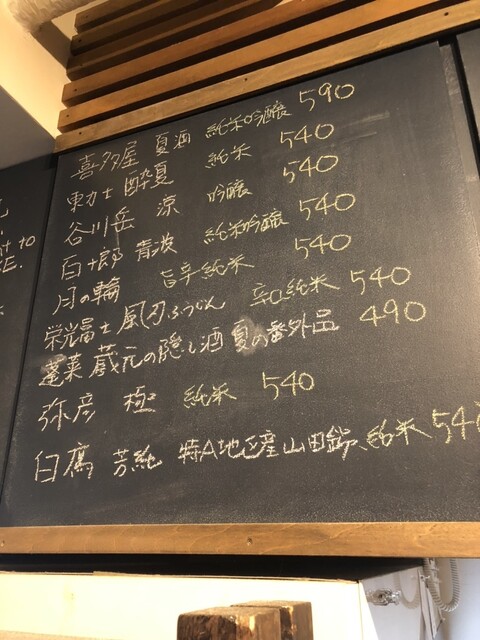 喜多屋 夏酒 純米吟醸 590
東力士 酔夏 純米 540
谷川岳 涼 吟醸 540
百十郎 青波 純米吟醸 540
月の輪 旨辛純米 540
栄光冨士 風刃ふうじん 辛口純米 540
蓬莱 蔵元の隠し酒 夏の番外品 490
弥彦 極 純米 540
白鷹 芳純 特A地区産山田錦 純米 540
t to
E.